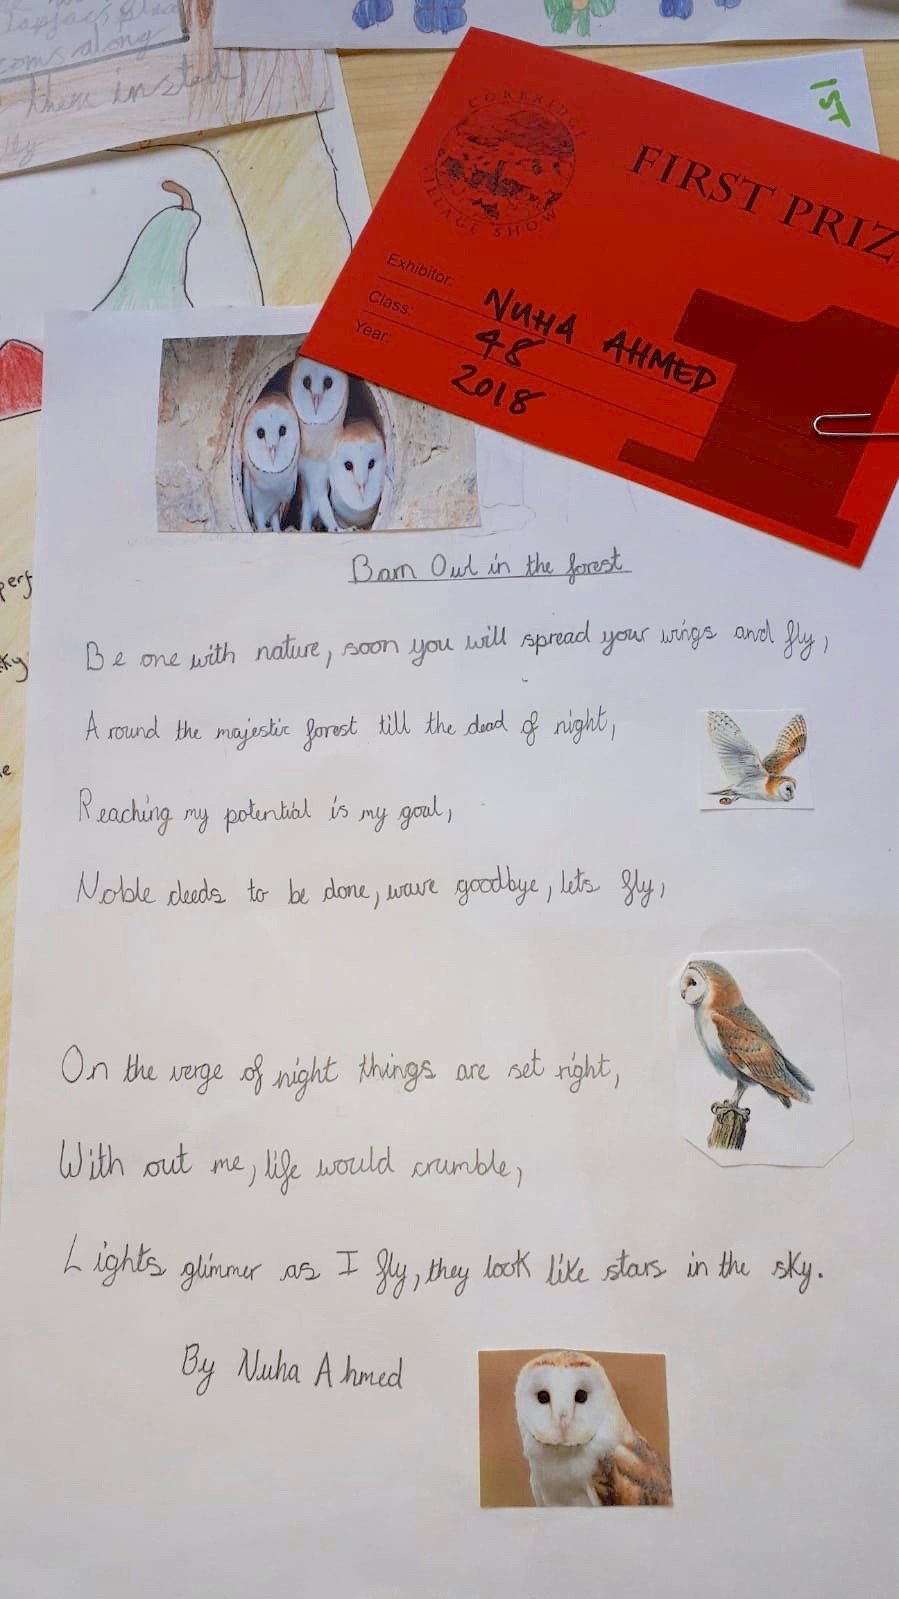 Tapjacs
coms along
them insted
lly
1ST
CORBRIDGE
VILLAGE SHOW
FIRST PRIZ
Exhibitor: NUHA AHMED
Class: 48
Year: 2018
1
Barn Owl in the forest
Be one with nature, soon you will spread your wings and fly,
Around the majestic forest till the dead of night,
Reaching my potential is my goal,
Noble deeds to be done, wave goodbye, lets fly,
On the verge of night things are set right,
With out me, life would crumble,
Lights glimmer as I fly, they look like stars in the sky.
By Nuha Ahmed
perf
ky
e